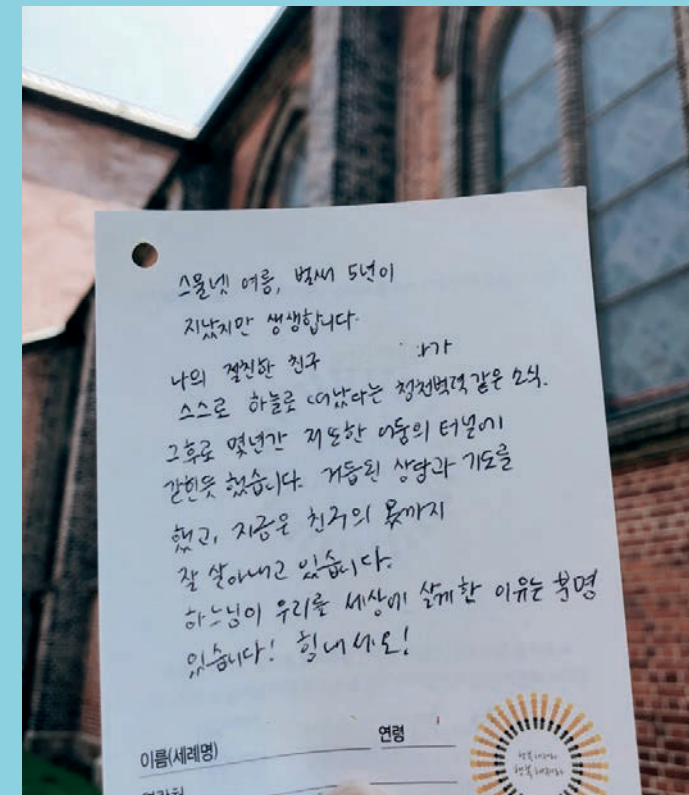 스물넷 여름, 벌써 5년이
지났지만 생생합니다.
나의 절친한 친구 가
스스로 하늘로 떠났다는 청천벽력 같은 소식.
그후로 몇년간 저 또한 어둠의 터널에
갇힌듯 했습니다. 거듭된 상담과 기도를
했고, 지금은 친구의 몫까지
잘 살아내고 있습니다.
하느님이 우리를 세상에 살게한 이유는 분명
있습니다! 힘내세요!
이름(세례명)
연령